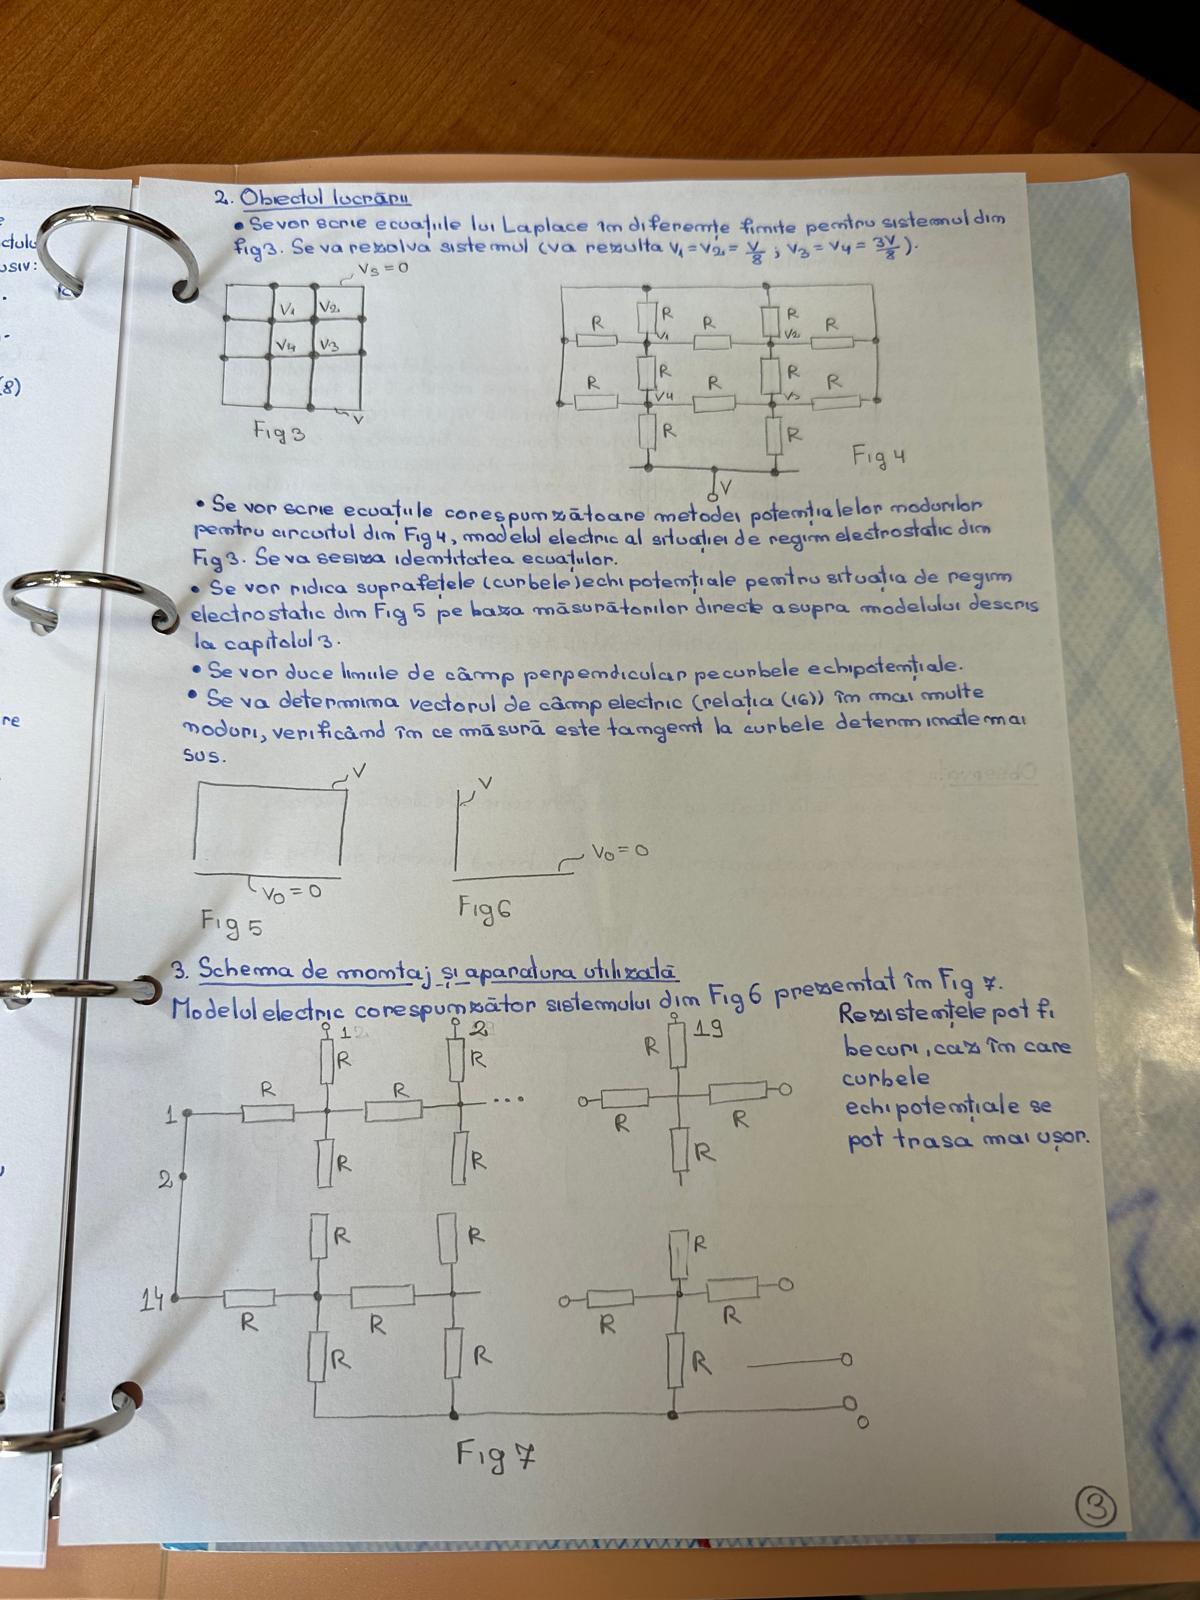 ctulu
usiv:
(8)
re
2. Obiectul lucrării
• Se vor scrie ecuațiile lui Laplace în diferențe finite pentru sistemul din
fig 3. Se va rezolva sistemul (va rezulta V1 = V2 = V/8 ; V3 = V4 = 3V/8).
Vs = 0
V1 V2
V4 V3
V
Fig 3
R R
R R R
V1 V2
R R
R R R
V4 V3
R R
V
Fig 4
• Se vor scrie ecuațiile corespunzătoare metodei potențialelor nodurilor
pentru circuitul din Fig 4, modelul electric al situației de regim electrostatic din
Fig 3. Se va sesiza identitatea ecuațiilor.
• Se vor ridica suprafețele (curbele) echipotențiale pentru situația de regim
electrostatic din Fig 5 pe baza măsurătorilor directe asupra modelului descris
la capitolul 3.
• Se vor duce liniile de câmp perpendicular pe curbele echipotențiale.
• Se va determina vectorul de câmp electric (relația (16)) în mai multe
noduri, verificând în ce măsură este tangent la curbele determinate mai
sus.
V
V0 = 0
Fig 5
V
V0 = 0
Fig 6
3. Schema de montaj și aparatura utilizată
Modelul electric corespunzător sistemului din Fig 6 prezentat în Fig 7.
Rezistențele pot fi
becuri, caz în care
curbele
echipotențiale se
pot trasa mai ușor.
1 2 19
R R R
1 R R ... R R
R R R
2
R R R
14 R R R R
R R R
Fig 7
3